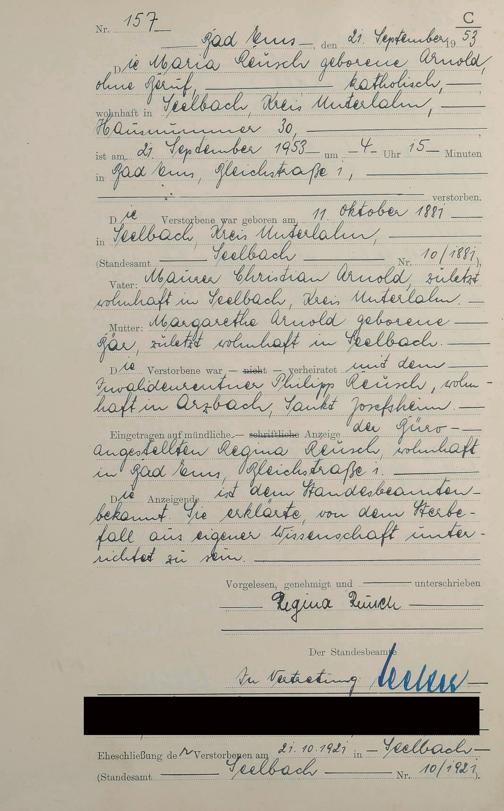 C
Nr. 157
Bad Ems, den 21. September 1953
Die Maria Reusch geborene Arnold,
ohne Beruf, katholisch,
wohnhaft in Seelbach, Kreis Unterlahn,
Hausnummer 30,
ist am 21. September 1953 um 4 Uhr 15 Minuten
in Bad Ems, Bleichstraße 1,
verstorben.
Die Verstorbene war geboren am 11. Oktober 1881
in Seelbach, Kreis Unterlahn,
(Standesamt Seelbach Nr. 10/1881),
Vater: Maurer Christian Arnold, zuletzt
wohnhaft in Seelbach, Kreis Unterlahn.
Mutter: Margarethe Arnold geborene
Bär, zuletzt wohnhaft in Seelbach.
Die Verstorbene war – nicht – verheiratet mit dem
Invalidenrentner Philipp Reusch, wohn-
haft in Arzbach, Sankt Josefsheim.
Eingetragen auf mündliche – schriftliche Anzeige der Büro-
angestellten Regina Reusch, wohnhaft
in Bad Ems, Bleichstraße 1.
Die Anzeigende ist dem Standesbeamten
bekannt. Sie erklärte, von dem Sterbe-
fall aus eigener Wissenschaft unter-
richtet zu sein.
Vorgelesen, genehmigt und unterschrieben
Regina Reusch
Der Standesbeamte
In Vertretung
Eheschließung der Verstorbenen am 21.10.1921 in Seelbach
(Standesamt Seelbach Nr. 10/1921).